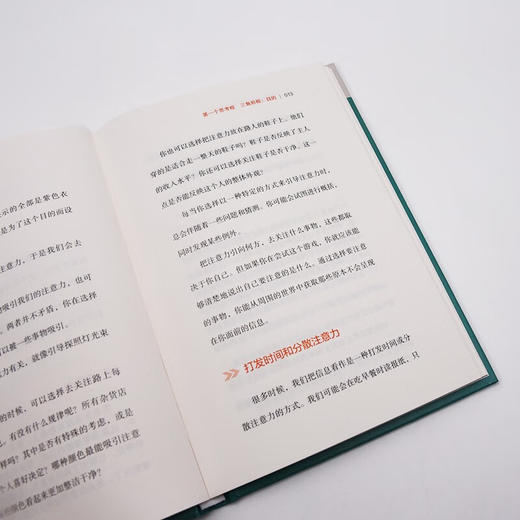 示的全部是紫色衣
是为了这个目的而设
注意力，于是我们会去
物吸引我们的注意力，也可
。两者并不矛盾，你在选择
可以被一些事物吸引。
力有关，就像引导探照灯光束
的时候，可以选择去关注路上每
。有没有什么规律呢？所有杂货店
样吗？其中是否有特殊的考虑，或是
个人喜好决定？哪种颜色最能吸引注意
些颜色看起来更加整洁干净？
第一个思考帽 三角形帽：目的 | 015
你也可以选择把注意力放在路人的鞋子上。他们
穿的是适合走一整天的鞋子吗？鞋子是否反映了主人
的收入水平？你还可以选择关注鞋子是否干净。这一
点是否能反映这个人的整体外观？
每当你选择以一种特定的方式来引导注意力时，
总会伴随着一些问题和猜测。你可能会试图进行概括，
同时发现某些例外。
把注意力引向何方，去关注什么事物，这些都取
决于你自己。但如果你在尝试这个游戏，你就应该能
够清楚地说出自己要注意的是什么。通过选择要注意
的事物，你能从周围的世界中获取那些原本不会呈现
在你面前的信息。
打发时间和分散注意力
很多时候，我们把信息看作是一种打发时间或分
散注意力的方式。我们可能会在吃早餐时读报纸，只